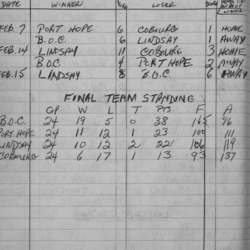 DATE WINNER LOSER
FEB.7 PORT HOPE 6 COBOURG 1 HOME
B.O.C. 6 LINDSAY 1 AWAY
FEB.14 LINDSAY 11 COBOURG 3 HOME
B.O.C 4 PORT HOPE 2 AWAY
FEB.15 LINDSAY 8 B.O.C 6 AWAY
FINAL TEAM STANDING
GP W L T PTS F A
B.O.C. 24 19 5 0 38 165 76
PORT HOPE 24 11 12 1 23 100 111
LINDSAY 24 10 12 2 22 106 119
COBOURG 24 6 17 1 13 93 137